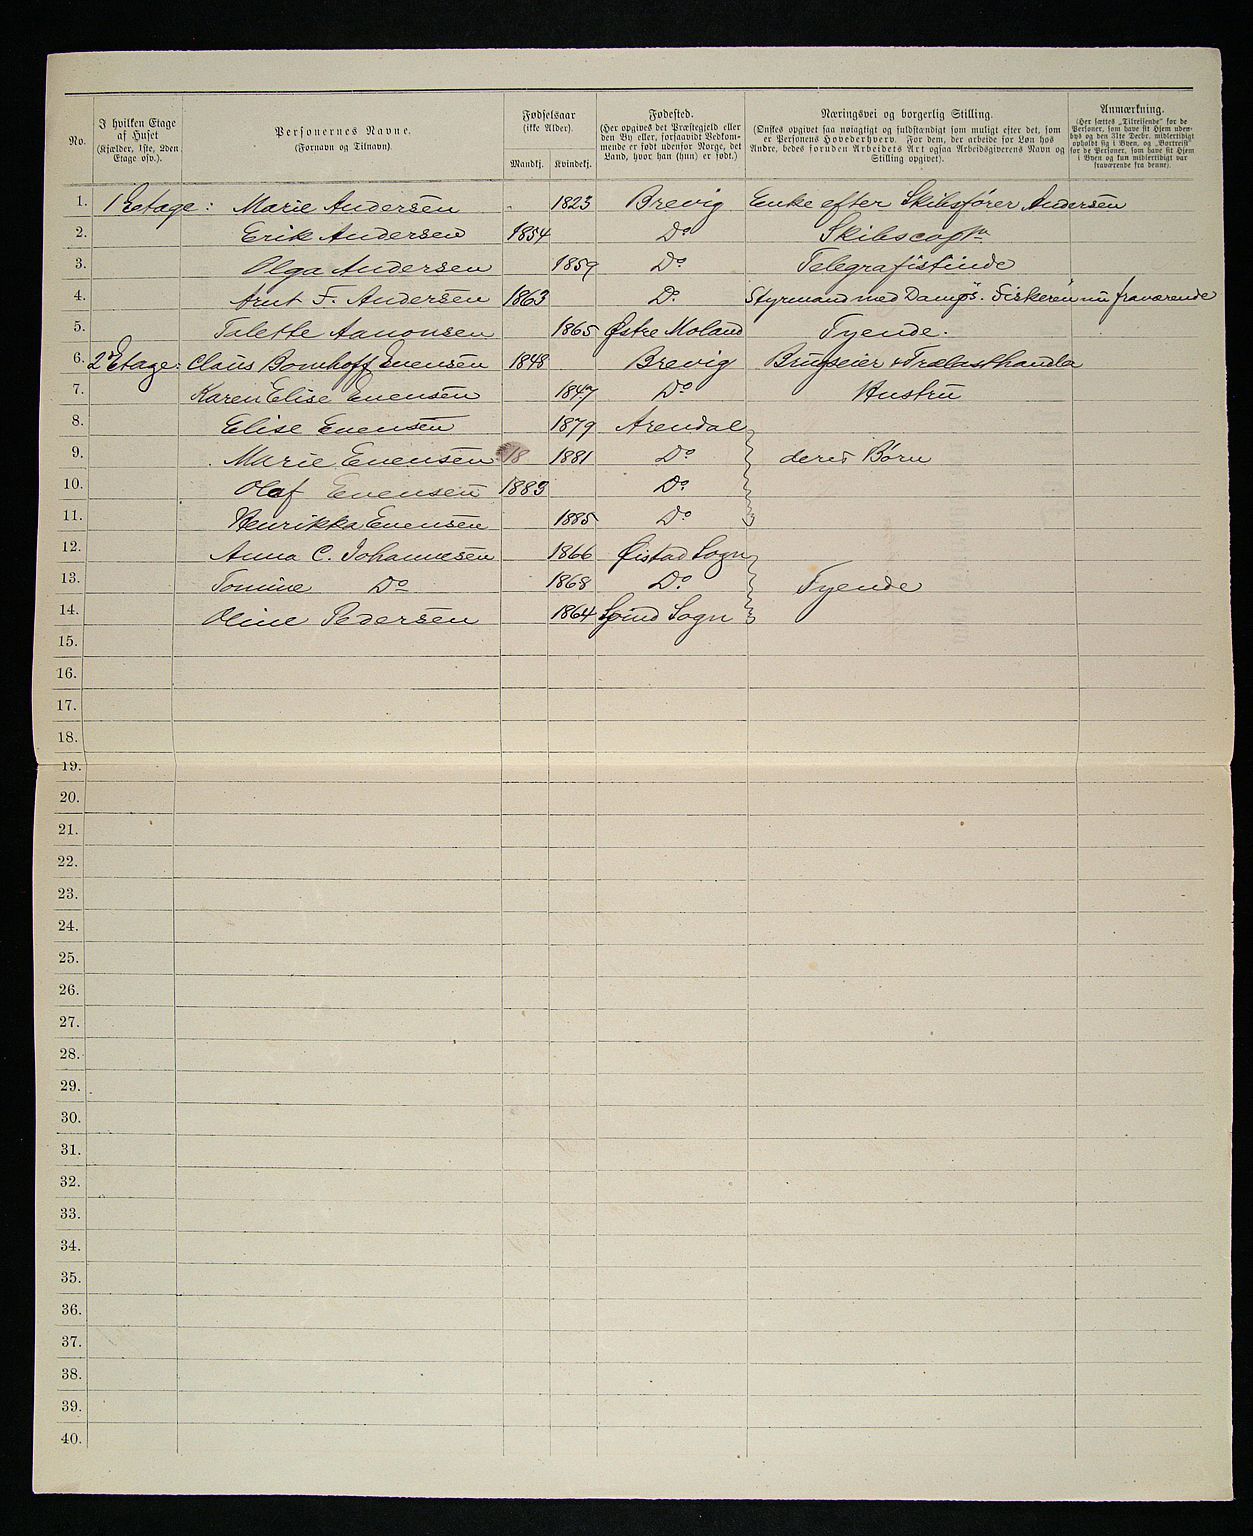 No.
I hvilken Etage
af Huset
(Kjælder, 1ste, 2den
Etage osv.).
Personernes Navne.
(Fornavn og Tilnavn).
Fødselsaar
(ikke Alder).
Mandkj.
Kvindekj.
Fødested.
(Her opgives det Præstegjeld eller
den By eller, forsaavidt Vedkom-
mende er født udenfor Norge, det
Land, hvor han (hun) er født.)
Næringsvei og borgerlig Stilling.
(Ønskes opgivet saa nøiagtigt og fuldstændigt som muligt efter det, som
er Personens Hovederhverv. For dem, der arbeide for Løn hos
Andre, bedes foruden Arbeidets Art ogsaa Arbeidsgiverens Navn og
Stilling opgivet).
Anmærkning.
(Her sættes „Tilreisende“ for de
Personer, som have sit Hjem uden-
bys og den 31te Decbr. midlertidigt
opholdt sig i Byen, og „Bortreist“
for de Personer, som have sit Hjem
i Byen og kun midlertidigt var
fraværende fra denne).
1. 1 Eetage: Marie Andersen 1823 Brevig Enke efter Skibsfører Andersen
2. Erik Andersen 1854 Do Skibscaptn
3. Olga Andersen 1859 Do Telegrafistinde
4. Arnt F. Andersen 1863 Do Styrmand med Damps. Fiskeren nu fraværende
5. Talette Aanonsen 1865 Østre Moland Tyende.
6. 2 Etage: Claus Bomhoff Evensen 1848 Brevig Brugseier & Trælasthandla
7. Karen Elise Evensen 1847 Do Hustru
8. Elise Evensen 1879 Arendal
9. Marie Evensen 18 1881 Do deres Børn
10. Olaf Evensen 1883 Do
11. Henrikka Evensen 1885 Do
12. Anna C. Johannesen 1866 Øistad Sogn
13. Tomine Do 1868 Do Tyende
14. Oline Pedersen 1864 Spind Sogn
15.
16.
17.
18.
19.
20.
21.
22.
23.
24.
25.
26.
27.
28.
29.
30.
31.
32.
33.
34.
35.
36.
37.
38.
39.
40.